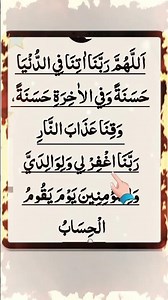 اَللّٰهُمَّ رَبَّنَا اٰتِنَا فِي الدُّنْيَا
حَسَنَةً وَّفِي الْاٰخِرَةِ حَسَنَةً،
وَقِنَا عَذَابَ النَّارِ
رَبَّنَا اغْفِرْ لِي وَلِوَالِدَيَّ
وَلِلْمُؤْمِنِينَ يَوْمَ يَقُومُ
الْحِسَابُ